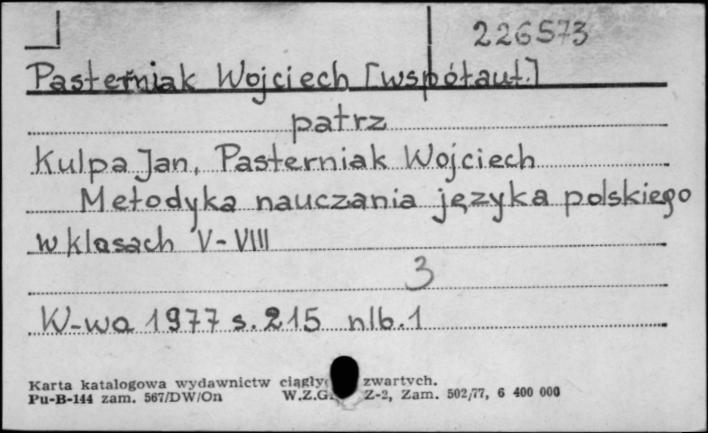 226573
Pasterniak Wojciech [współaut.]
patrz
Kulpa Jan, Pasterniak Wojciech
Metodyka nauczania języka polskiego
w klasach V-VIII
3
W-wa 1977 s. 215 nlb. 1
Karta katalogowa wydawnictw ciągły zwartych.
Pu-B-144 zam. 567/DW/On W.Z.G. Z-2, Zam. 502/77, 6 400 000